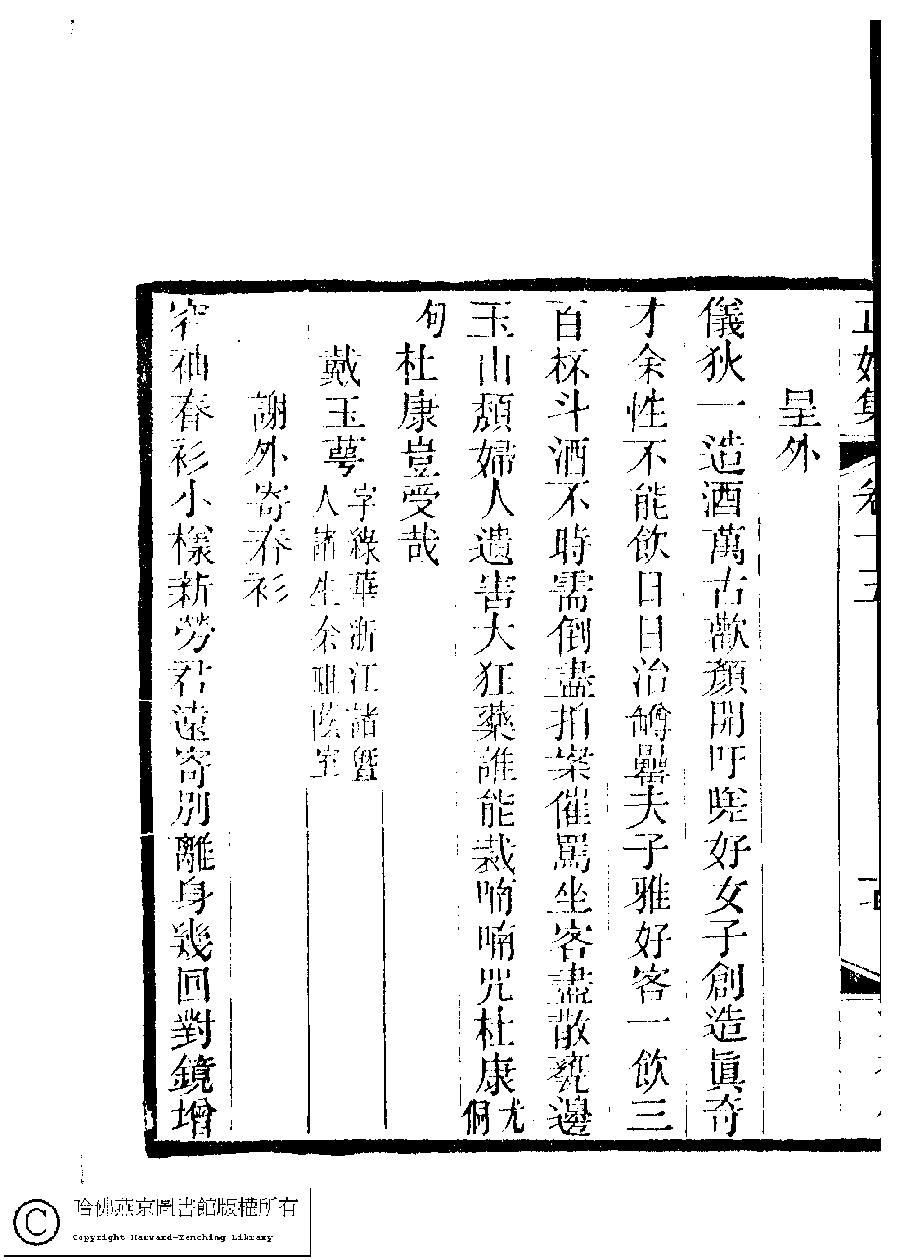 正始集 卷十五
呈外
儀狄一造酒萬古歡顏開吁嗟好女子創造眞奇
才余性不能飲日日治罇罍夫子雅好客一飲三
百杯斗酒不時需倒盡拍案催罵坐客盡散甕邊
玉山頹婦人遺害大狂藥誰能裁喃喃咒杜康尤侗
句杜康豈受哉
戴玉萼字綠華浙江諸暨
人諸生余祖蔭室
謝外寄春衫
窄袖春衫小樣新勞君遠寄別離身幾回對鏡增
哈佛燕京圖書館版權所有
Copyright Harvard-Yenching Library